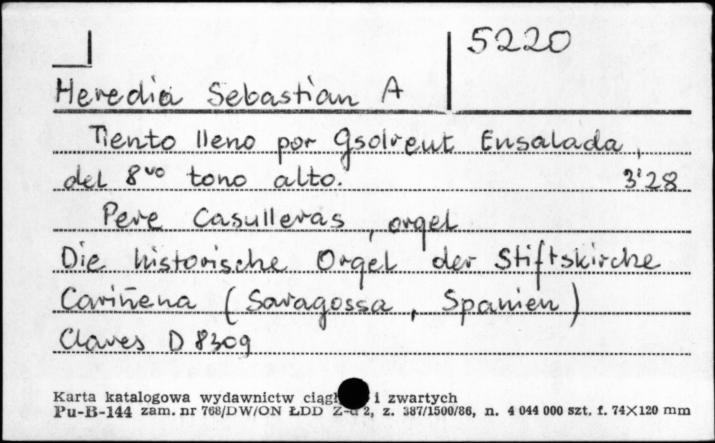 5220
Heredia Sebastian A
Tiento lleno por Gsolreut Ensalada,
del 8vo tono alto. 3'28
Pere Casulleras, orgel
Die historische Orgel der Stiftskirche
Cariñena (Saragossa, Spanien)
Claves D 8309
Karta katalogowa wydawnictw i zwartych
Pu-B-144 zam. nr 768/DW/ON ŁDD 2, z. 387/1500/86, n. 4 044 000 szt. f. 74×120 mm